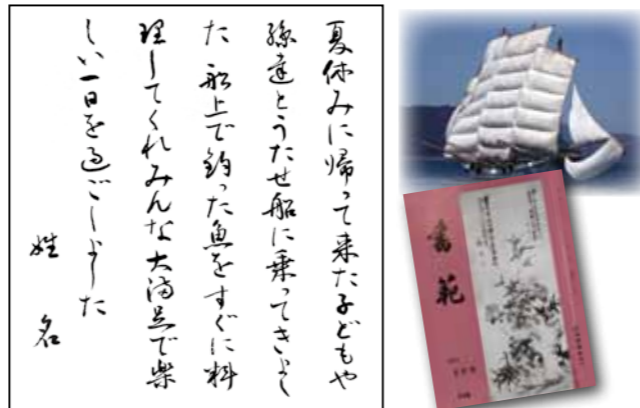 夏休みに帰って来た子どもや
孫達とうたせ船に乗ってきまし
た 船上で釣った魚をすぐに料
理してくれみんな大満足で楽
しい一日を過ごしました
姓名
書範